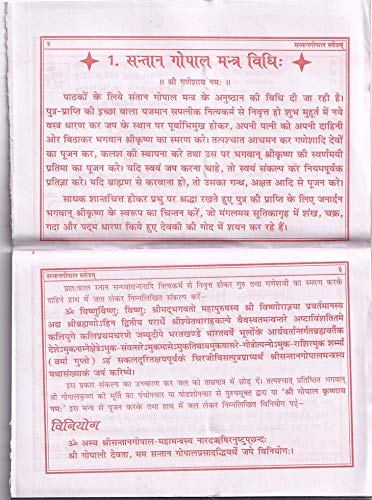 २ सन्तानगोपाल स्तोत्रम्
1. सन्तान गोपाल मन्त्र विधिः
॥ श्री गणेशाय नमः ॥
पाठकों के लिये संतान गोपाल मन्त्र के अनुष्ठान की विधि दी जा रही है।
पुत्र-प्राप्ति की इच्छा वाला यजमान सपत्नीक नित्यकर्म से निवृत्त हो शुभ मुहूर्त में नये
वस्त्र धारण कर जप के स्थान पर पूर्वाभिमुख होकर, अपनी पत्नी को अपनी दाहिनी
ओर बिठाकर भगवान श्रीकृष्ण का स्मरण करे। तत्पश्चात आचमन कर गणेशादि देवों
का पूजन कर, कलश की स्थापना करे तथा उस पर भगवान् श्रीकृष्ण की स्वर्णमयी
प्रतिमा का पूजन करे। यदि स्वयं जप करना चाहे, तो स्वयं संकल्प कर नियमपूर्वक
प्रतिज्ञा करे। यदि ब्राह्मण से करवाना हो, तो उसका गन्ध, अक्षत आदि से पूजन करे।
साधक शान्तचित्त होकर प्रभु पर श्रद्धा रखते हुए पुत्र की प्राप्ति के लिए जनार्दन
भगवान् श्रीकृष्ण के स्वरूप का चिन्तन करें, जो मंगलमय सूतिकागृह में शंख, चक्र,
गदा और पद्म धारण किये हुए देवकी की गोद में शयन कर रहे हैं।
सन्तानगोपाल स्तोत्रम् ३
प्रातःकाल स्नान सन्ध्यावन्दनादि नित्यकर्म से निवृत्त होकर गुरु तथा गणेशजी का स्मरण करके
दाहिने हाथ में जल लेकर निम्नलिखित संकल्प करें–
ॐ विष्णुर्विष्णुः विष्णुः श्रीमद्भगवतो महापुरुषस्य श्री विष्णोराज्ञया प्रवर्तमानस्य
अद्य श्रीब्रह्मणोऽह्नि द्वितीय परार्धे श्रीश्वेतवाराहकल्पे वैवस्वतमन्वन्तरे अष्टाविंशतितमे
कलियुगे कलिप्रथमचरणे जम्बूद्वीपे भरतखण्डे भारतवर्षे भूर्लोके आर्यावर्तान्तर्गतब्रह्मावर्तैक
देशेऽमुकनाम्नेक्षेत्रेऽमुक-संवत्सरेऽमुकमासेऽमुकतिथावमुकवासरे-गोत्रोत्पन्नोऽमुक-राशिरमुक शर्मा
(वर्मा गुप्तो) ऽहं सकलदुरितक्षयपूर्वकं चिरजीविसत्पुत्रप्राप्त्यर्थं श्रीसन्तानगोपालमन्त्रस्य
यथासंख्याकं जपं करिष्ये।
इस प्रकार संकल्प का उच्चारण कर जल को ताम्रपात्र में छोड़ दें। तत्पश्चात् प्रतिष्ठित भगवान्
श्री गोपालकृष्ण की मूर्ति का पंचोपचार या षोडशोपचार से पुरुषसूक्त द्वारा या 'श्री गोपाल कृष्णाय
नमः' इस मन्त्र से पूजन करके तथा हाथ में जल लेकर निम्नलिखित विनियोग पढ़ें–
विनियोग
ॐ अस्य श्रीसन्तानगोपाल-महामन्त्रस्य नारदऋषिरनुष्टुप्छन्दः
श्री गोपालो देवता, मम सन्तान गोपालप्रसादसिद्धयर्थे जपे विनियोगः।